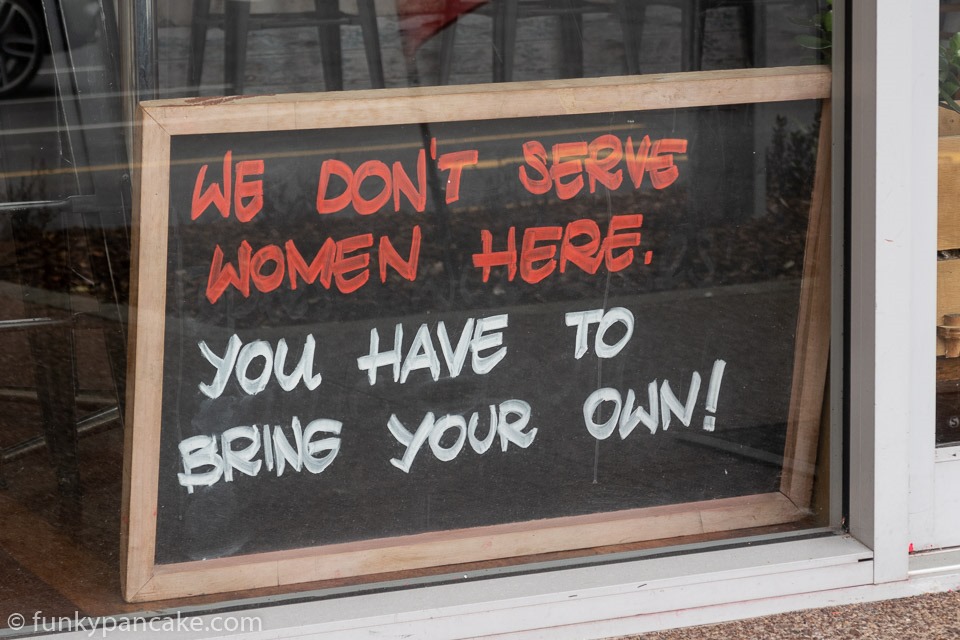 WE DON'T SERVE
WOMEN HERE.
YOU HAVE TO
BRING YOUR OWN!
© funkypancake.com